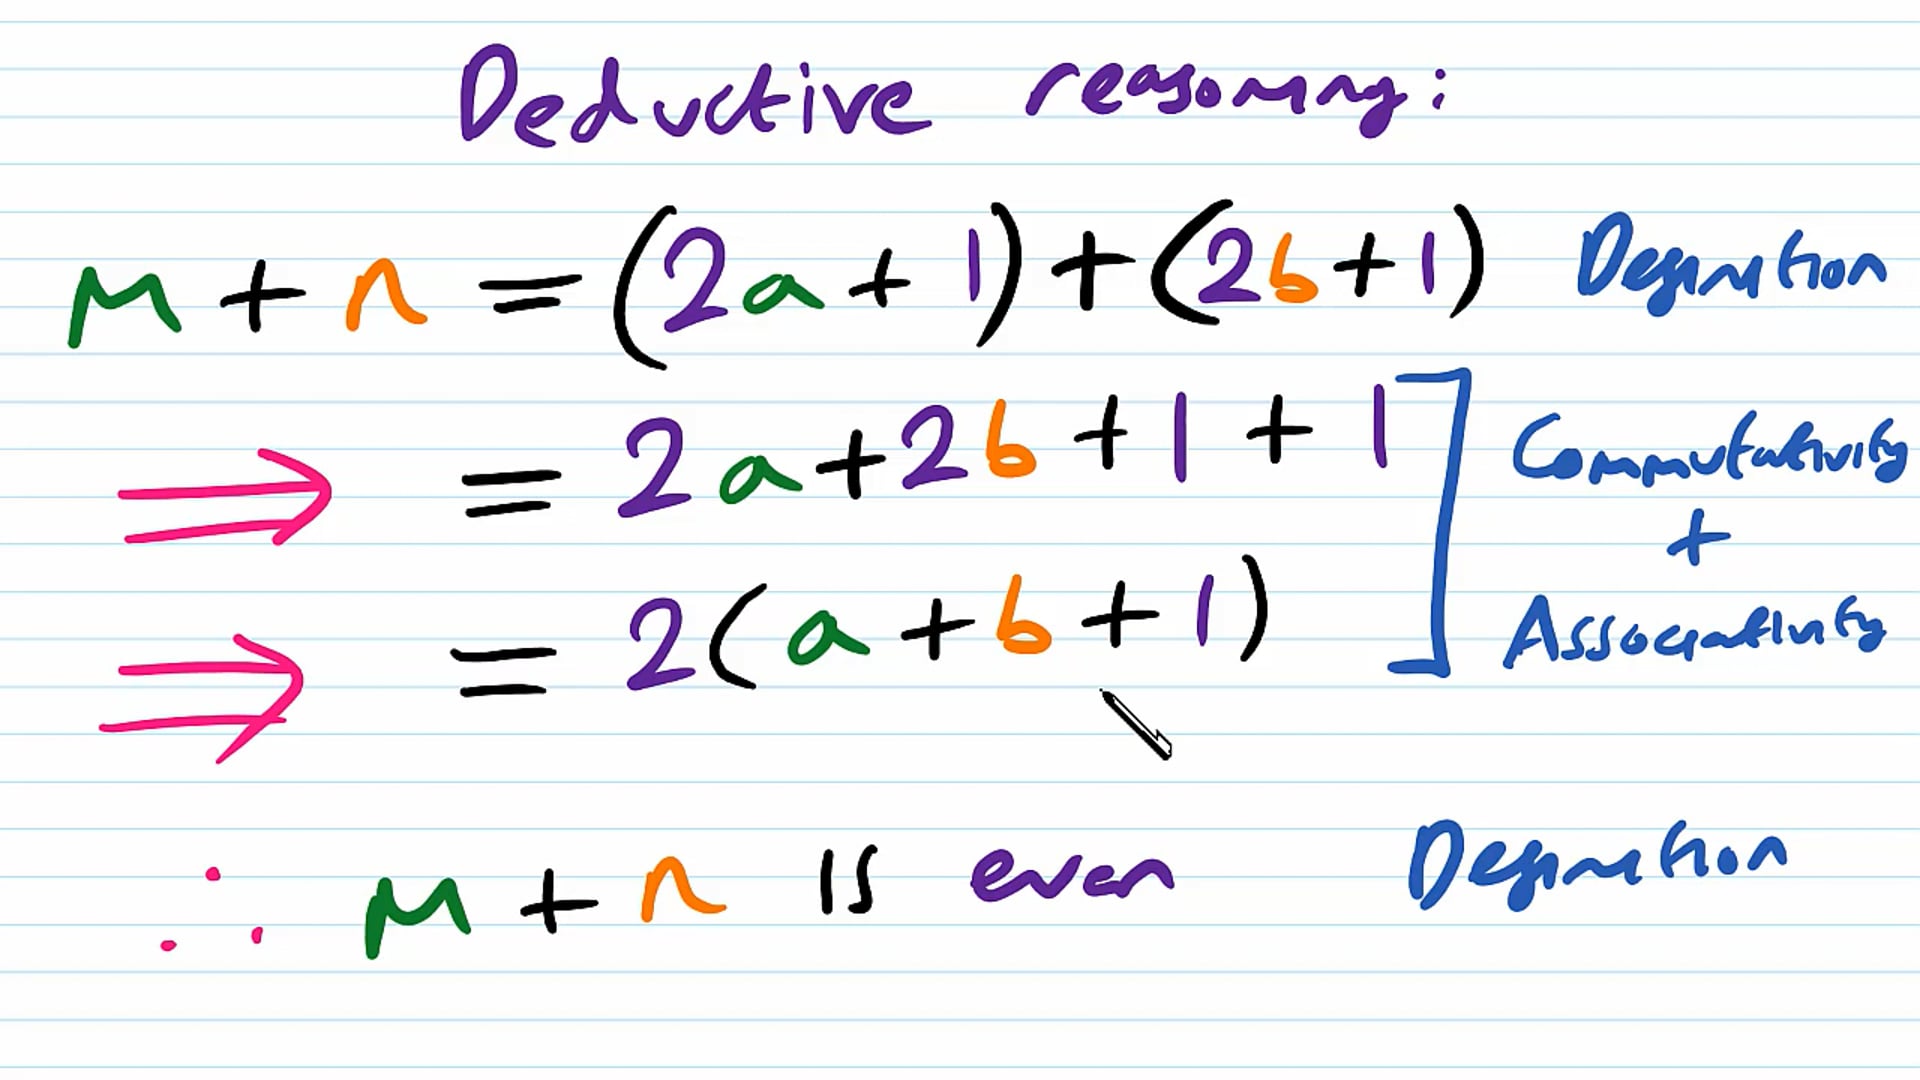 Deductive reasoning:
m + n = (2a + 1) + (2b + 1) Definition
⇒ = 2a + 2b + 1 + 1
Commutativity
+
Associativity
⇒ = 2(a + b + 1)
∴ m + n is even Definition